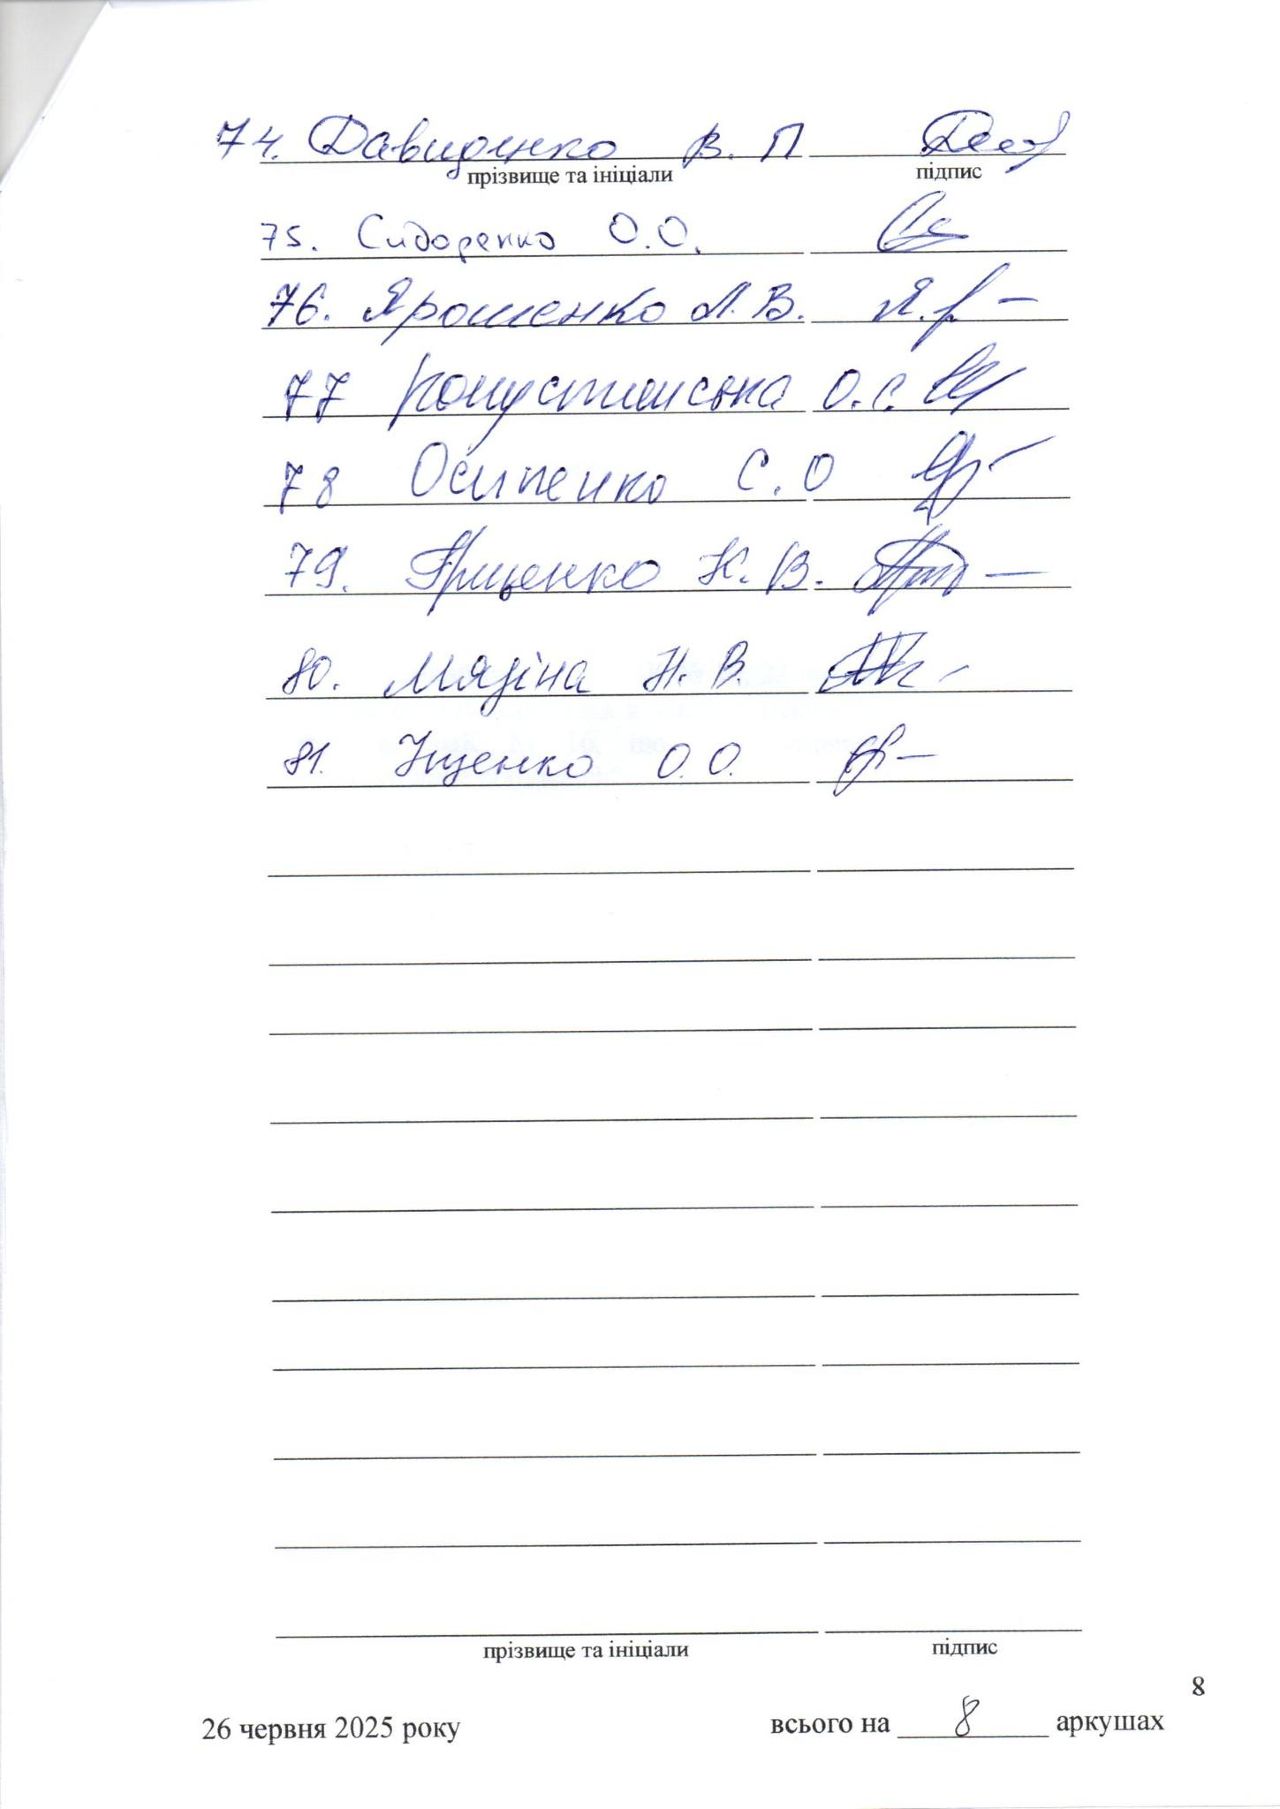 74. Давиденко В. П
прізвище та ініціали підпис
75. Сидоренко О.О.
76. Ярошенко Л.В.
77 О.С.
78 Осипенко С.О
79. Гриценко Н.В.
80. Мязіна Н.В.
81. Іщенко О.О.
прізвище та ініціали підпис
8
26 червня 2025 року всього на 8 аркушах